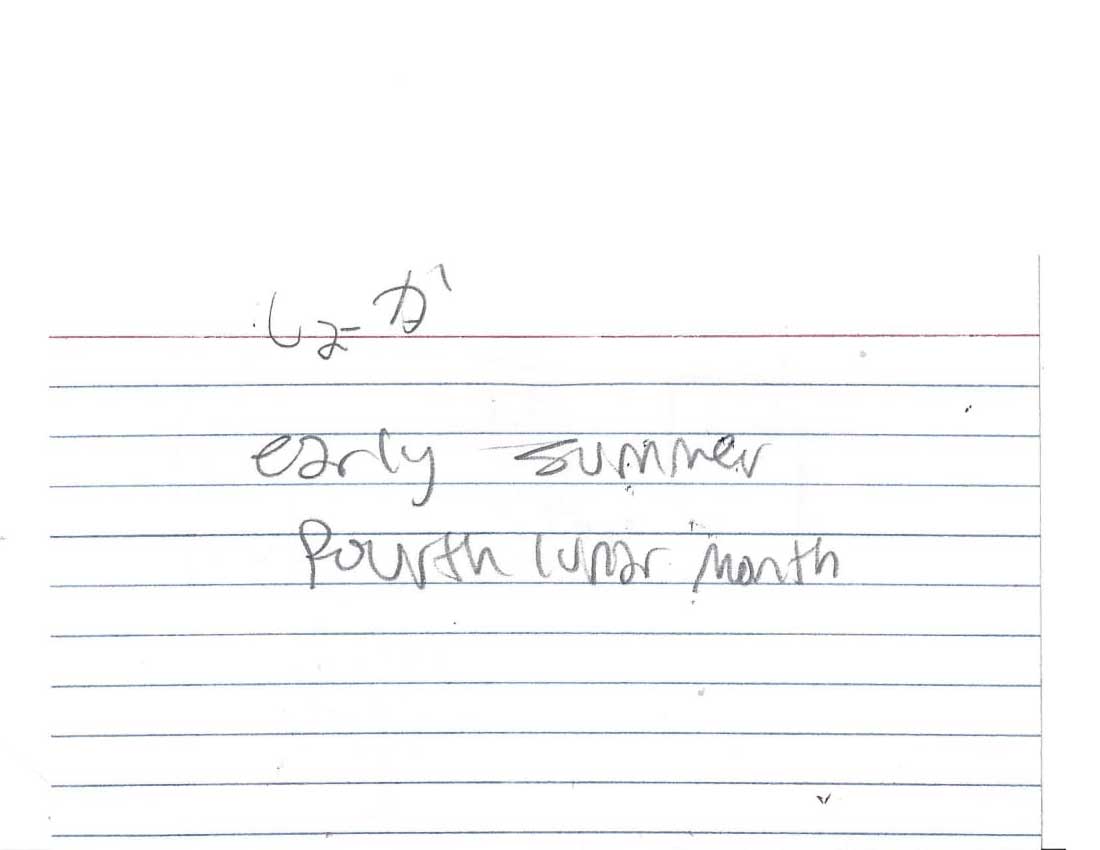 しょか
early summer
fourth lunar month